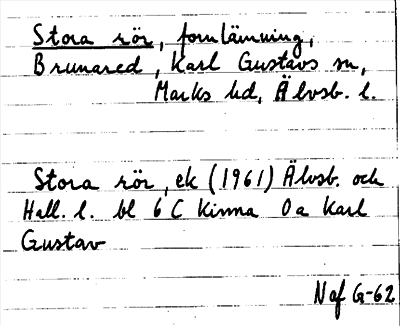 Stora rör, fornlämning,
Brunared, Karl Gustavs sn,
Marks hd, Älvsb. l.
Stora rör, ek (1961) Älvsb. och
Hall. l. bl 6 C Kinna 0a Karl
Gustav
Naf G-62